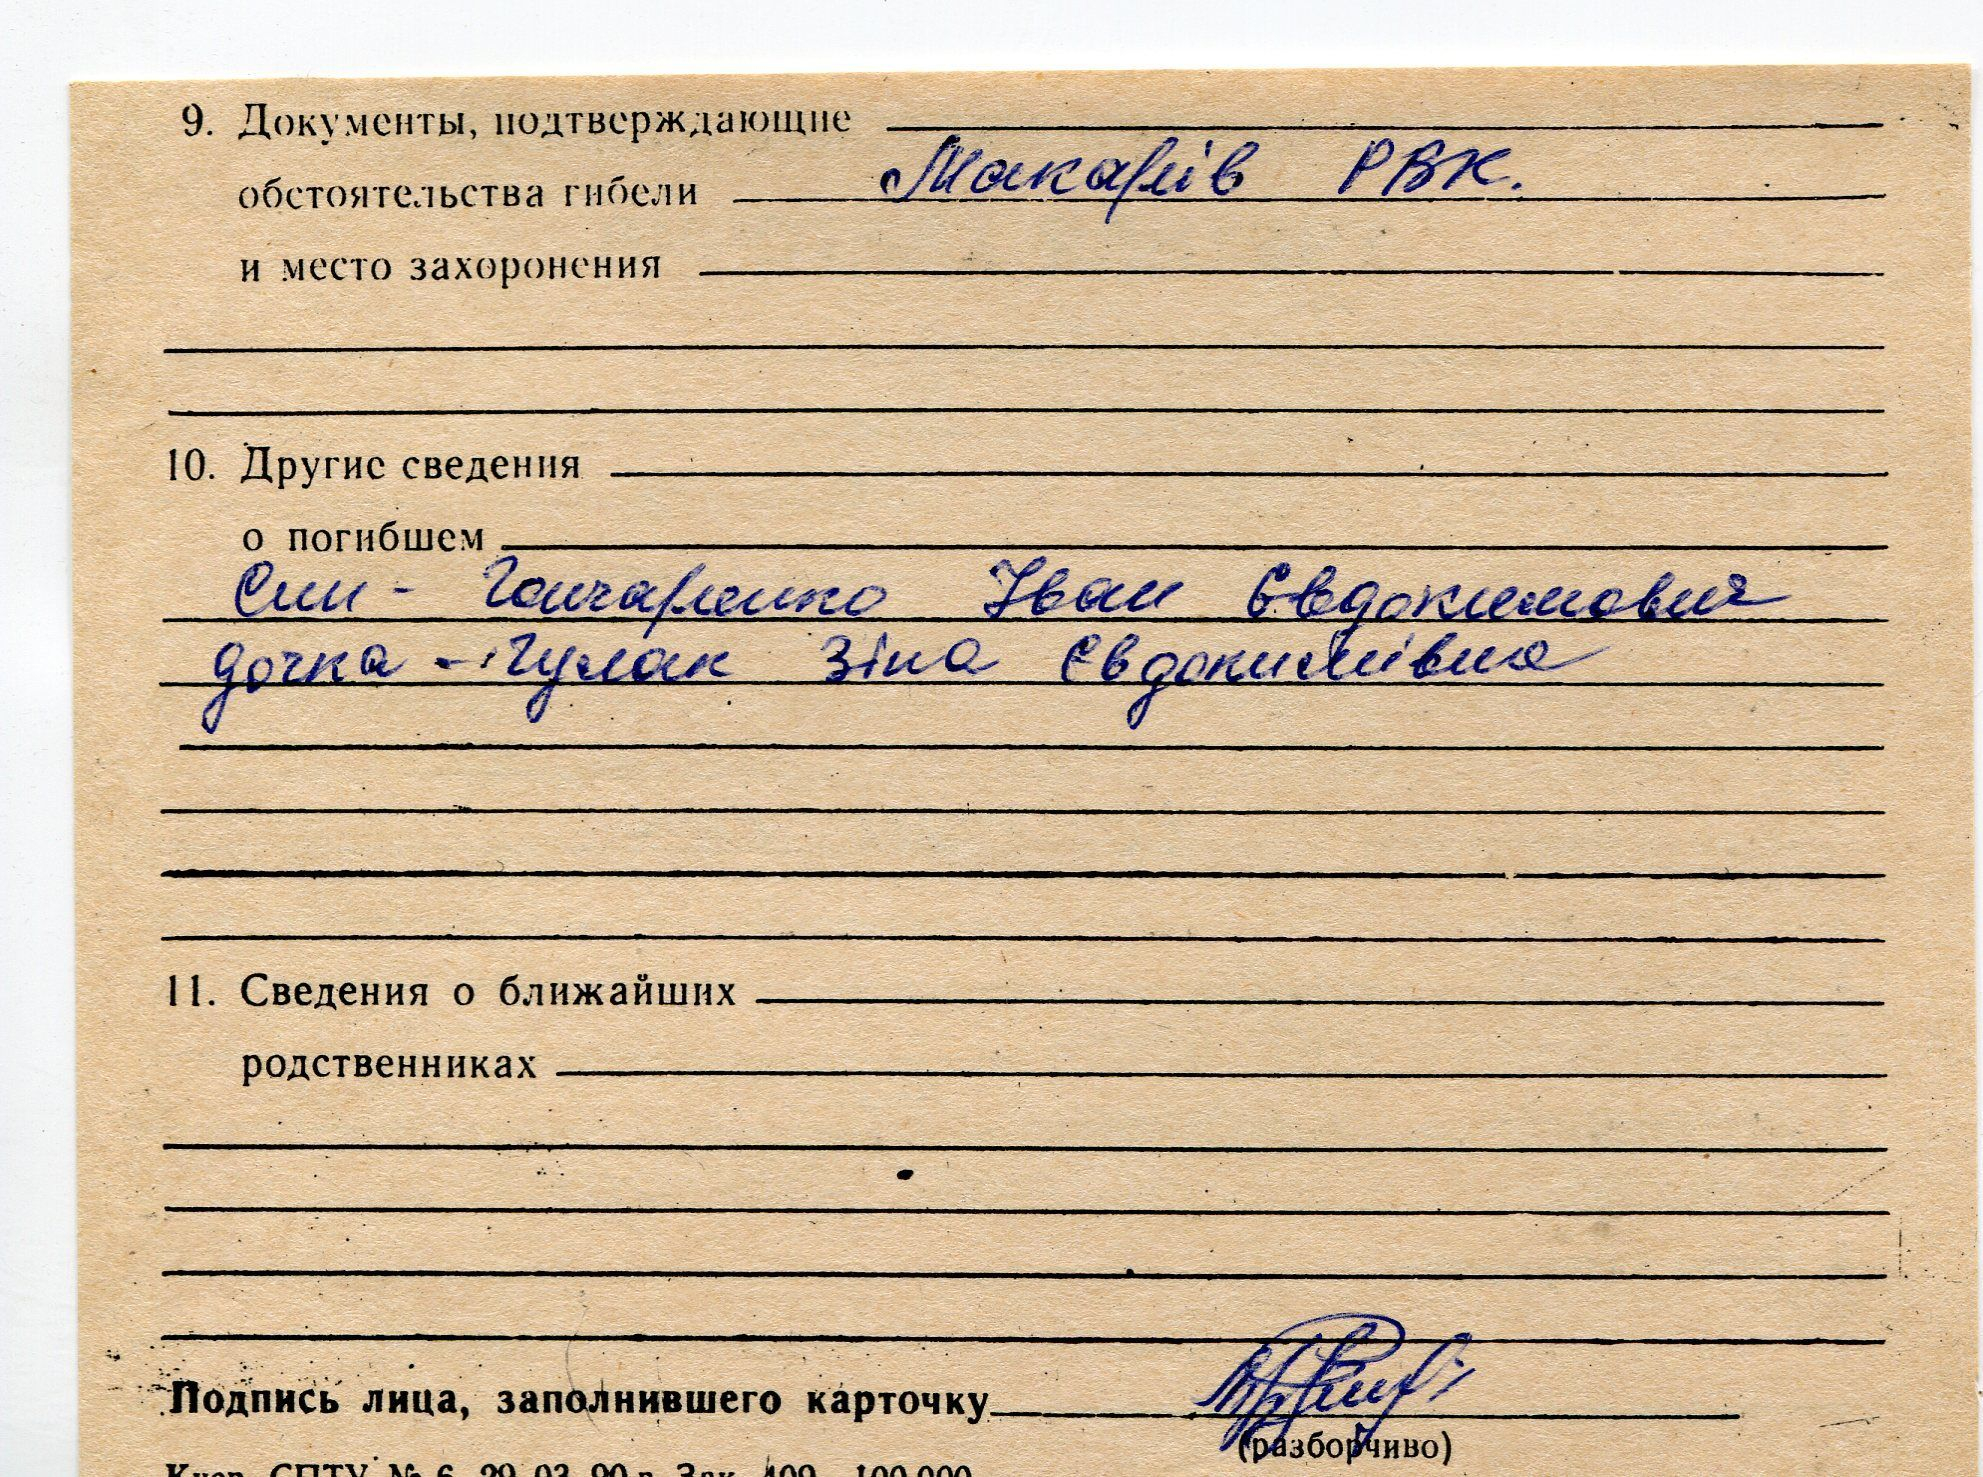 9. Документы, подтверждающие
обстоятельства гибели Макарів РВК.
и место захоронения
10. Другие сведения
о погибшем
Син - Гончаренко Іван Євдокимович
дочка - Гулак Зіна Євдокимівна
11. Сведения о ближайших
родственниках
Подпись лица, заполнившего карточку
(разборчиво)
Киев, СПТУ № 6, 29. 03. 90 г. Зак. 409—100.000